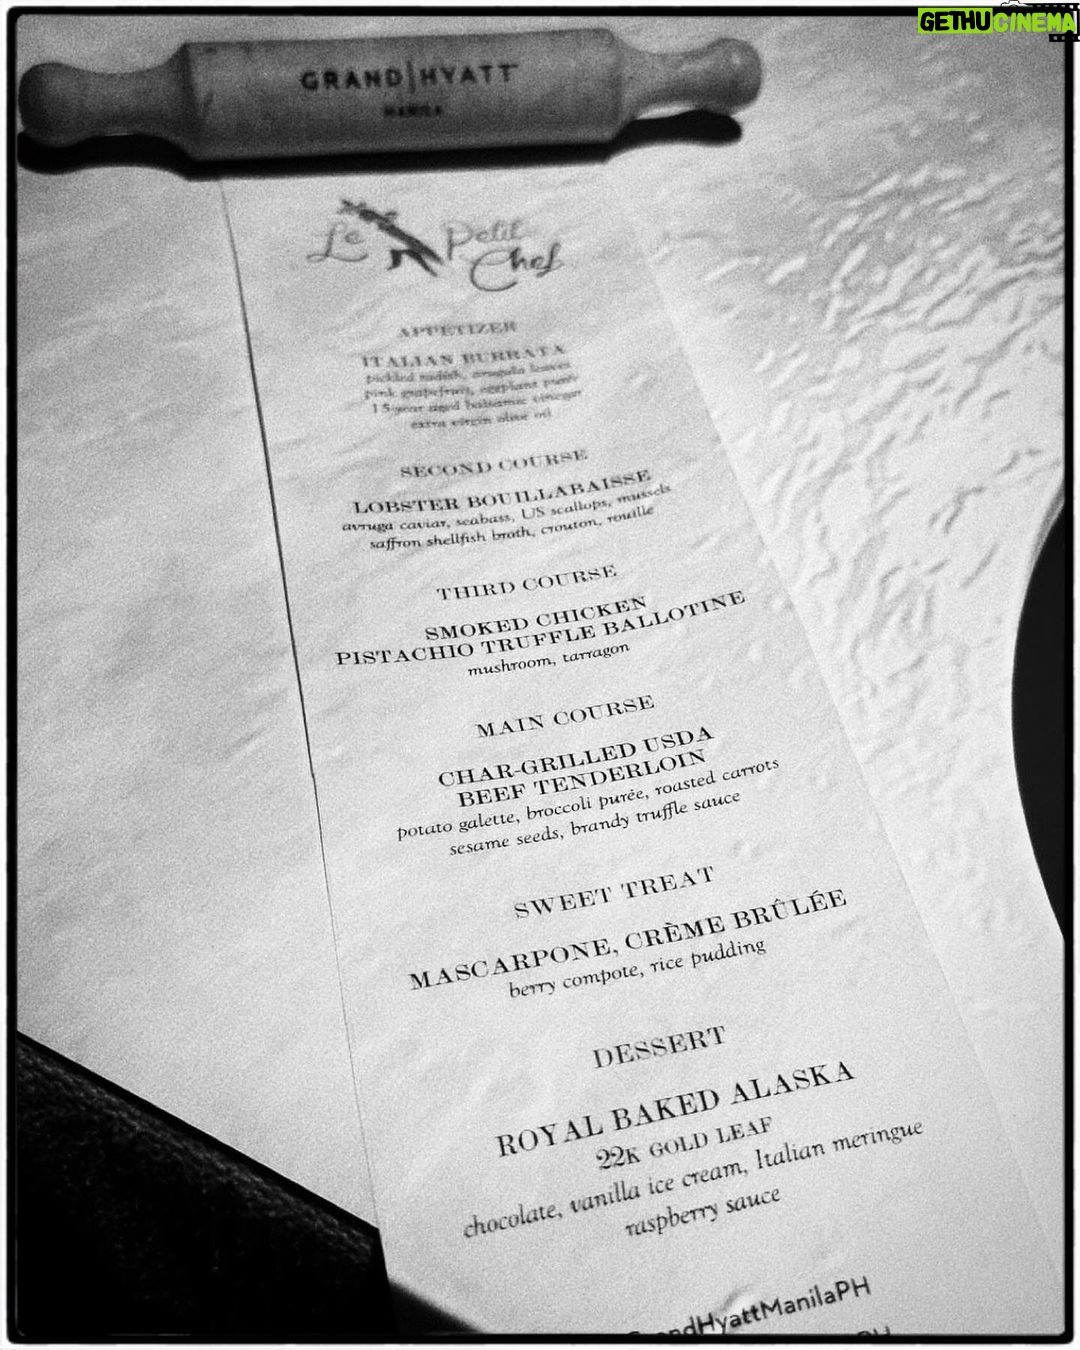 GETHUCINEMA
GRAND|HYATT
MANILA
Le Petit
Chef
APPETIZER
ITALIAN BURRATA
pickled radish, arugula leaves
pink grapefruit, eggplant purée
15-year aged balsamic vinegar
extra virgin olive oil
SECOND COURSE
LOBSTER BOUILLABAISSE
avruga caviar, seabass, US scallops, mussels
saffron shellfish broth, crouton, rouille
THIRD COURSE
SMOKED CHICKEN
PISTACHIO TRUFFLE BALLOTINE
mushroom, tarragon
MAIN COURSE
CHAR-GRILLED USDA
BEEF TENDERLOIN
potato galette, broccoli purée, roasted carrots
sesame seeds, brandy truffle sauce
SWEET TREAT
MASCARPONE, CRÈME BRÛLÉE
berry compote, rice pudding
DESSERT
ROYAL BAKED ALASKA
22K GOLD LEAF
chocolate, vanilla ice cream, Italian meringue
raspberry sauce
GrandHyattManilaPH